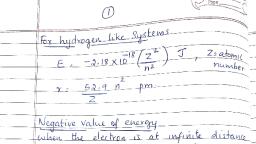 ①
For hydrogen like Systems
E = -2.18 × 10⁻¹⁸ (Z²/n²) J , Z = atomic number
r = 52.9 n²/Z pm
Negative value of energy
when the electron is at infinite distance